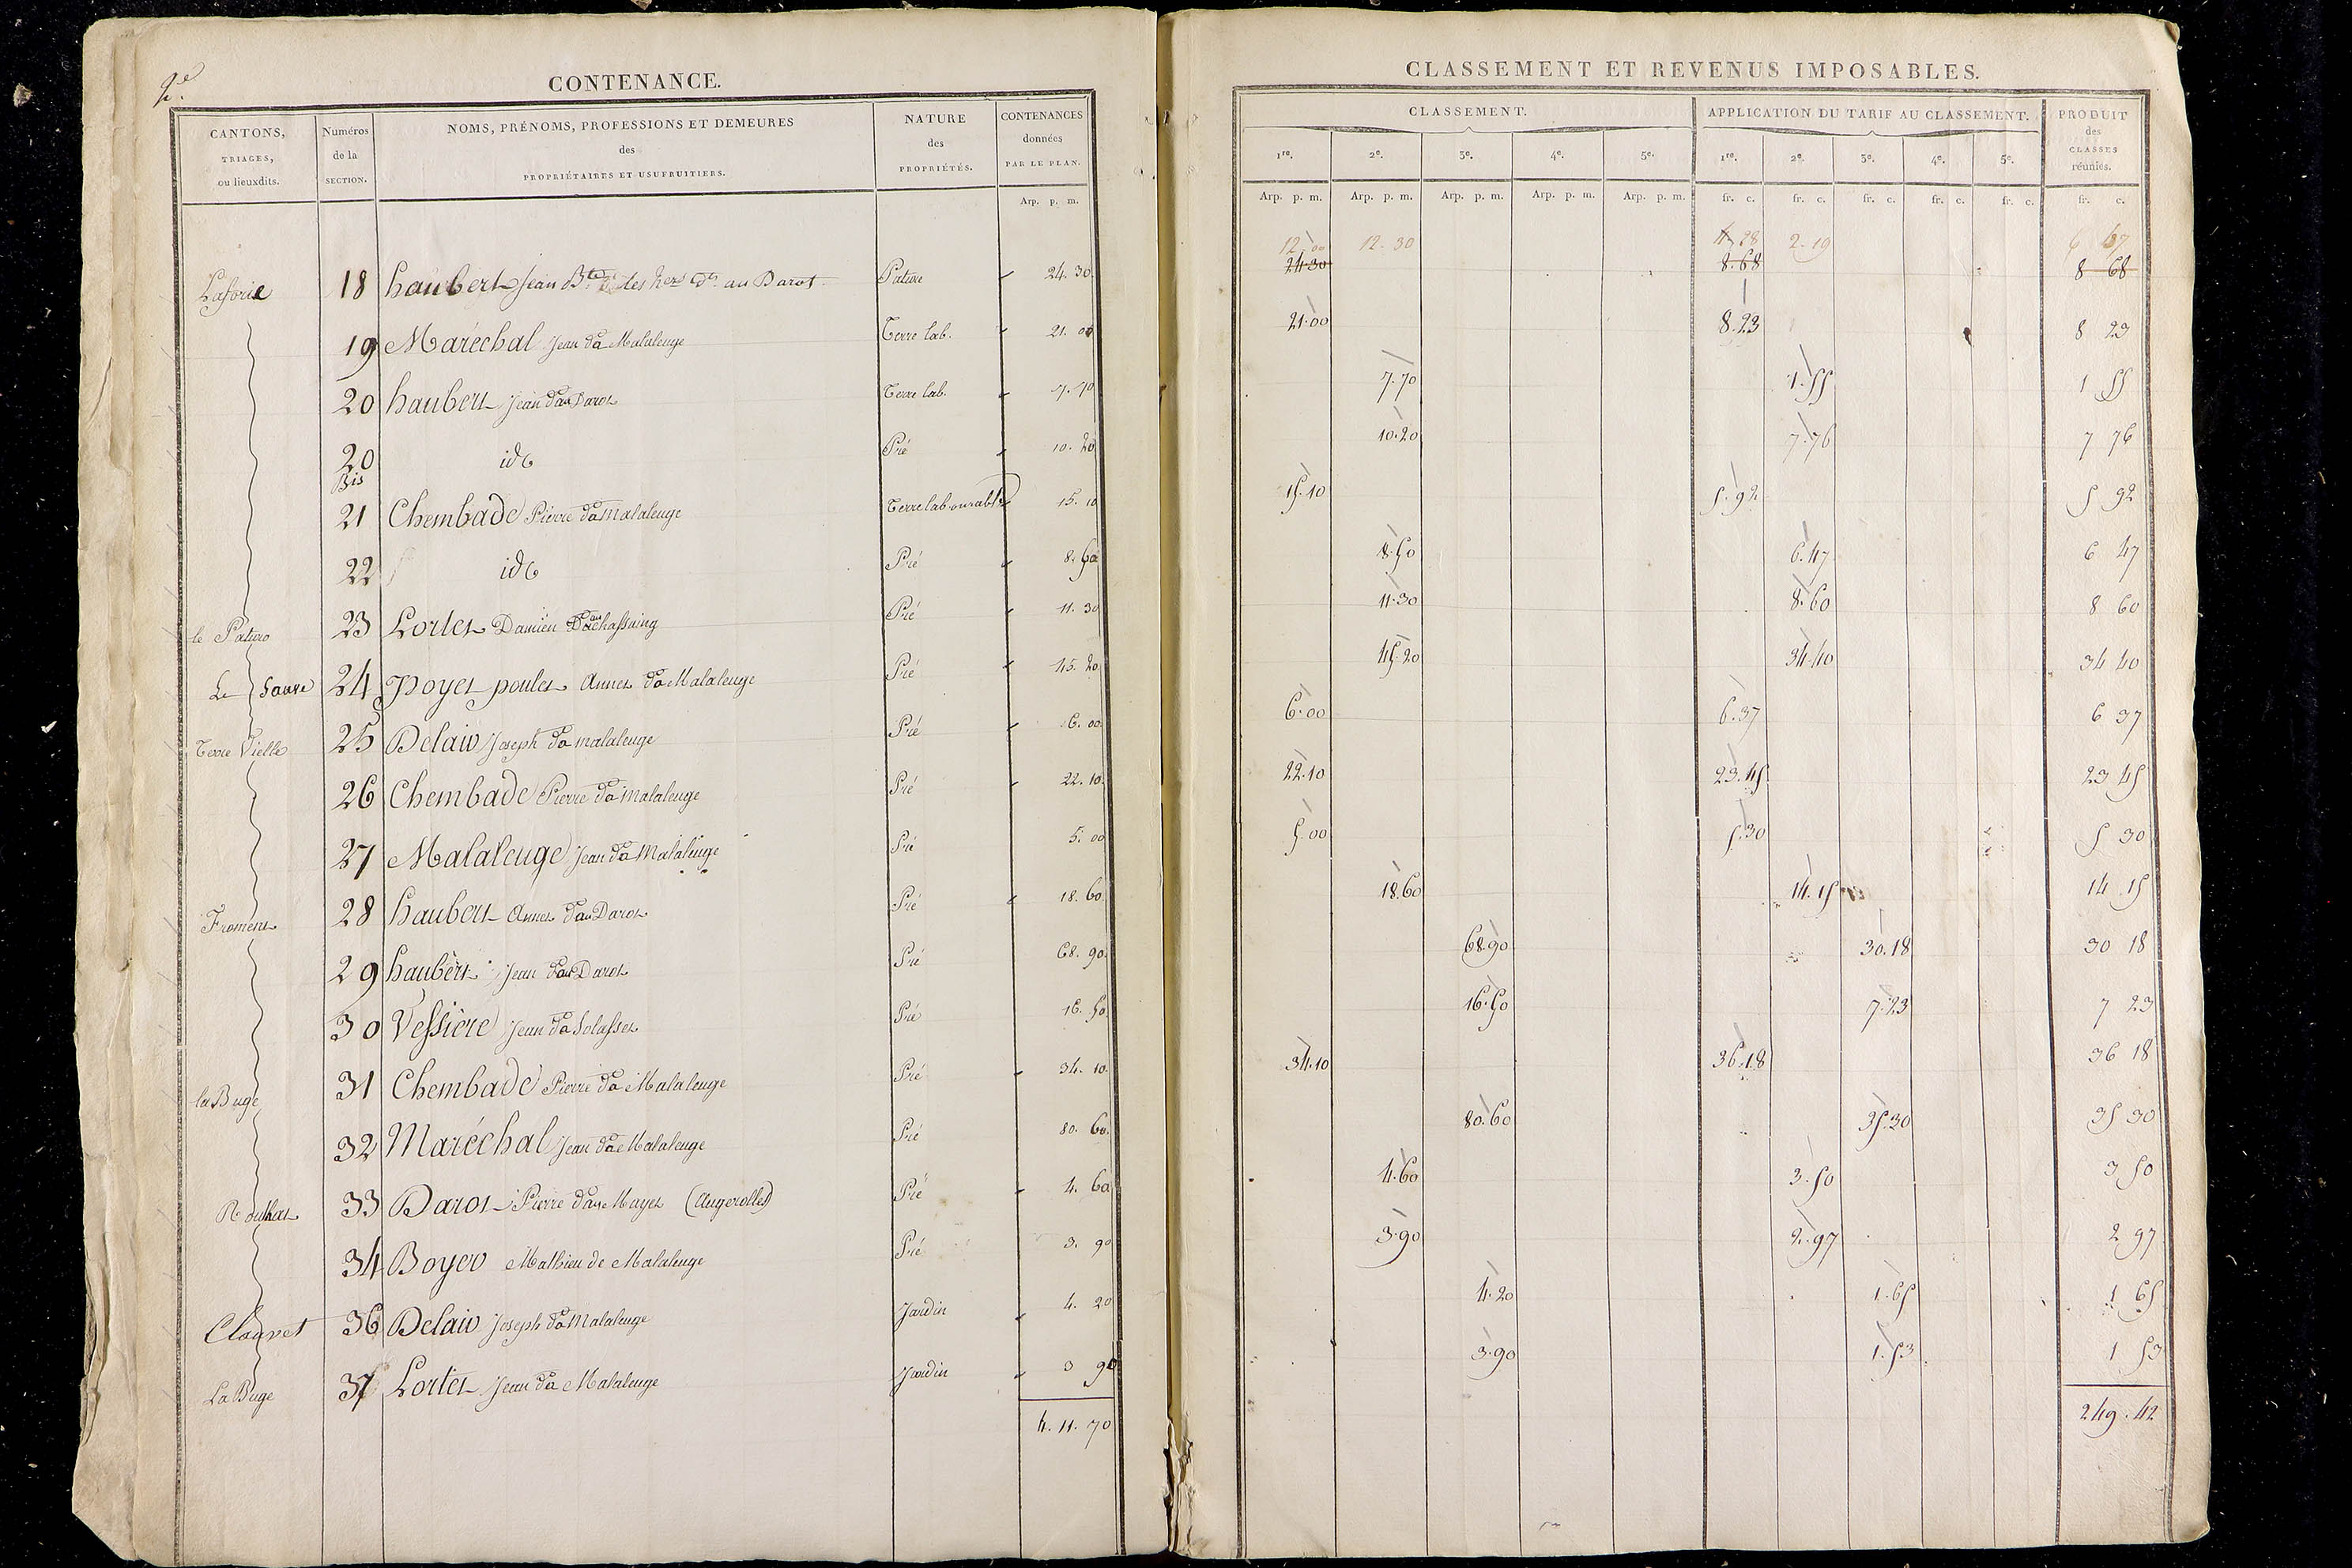 2e.
CONTENANCE.
CANTONS,
TRIAGES,
ou lieuxdits.
Numéros
de la
SECTION.
NOMS, PRÉNOMS, PROFESSIONS ET DEMEURES
des
PROPRIÉTAIRES ET USUFRUITIERS.
NATURE
des
PROPRIÉTÉS.
CONTENANCES
données
PAR LE PLAN.
Arp. p. m.
Laforie 18 haubert Jean Bte des hers au Darot Pature 24. 30
19 Maréchal Jean da Malaleuge Terre lab. 21. 00
20 haubert Jean dau Darot Terre lab. 7. 70
20 Bis id Pré 10. 20
21 Chembade Pierre da malaleuge Terre labourable 15. 10
22 id Pré 8. 50
le Paturo 23 Lortet Damien Pré 11. 30
Le Sauve 24 Poyet poulet Annet da Malaleuge Pré 45. 20
Terre Vielle 25 Delair Joseph da malaleuge Pré 6. 00
26 Chembade Pierre da malaleuge Pré 22. 10
27 Malaleuge Jean da Malaleuge Pré 5. 00
Froment 28 haubert Annet dau Darot Pré 18. 60
29 haubert Jean dau Darot Pré 68. 90
30 Vessière Jean da Solasses Pré 16. 50
la Buge 31 Chembade Pierre da Malaleuge Pré 34. 10
32 Maréchal Jean da Malaleuge Pré 80. 60
33 Darot Pierre Mayet (augerolles) Pré 4. 60
34 Boyer Mathieu de Malaleuge Pré 3. 90
Clauvet 36 Delair Joseph da Malaleuge Jardin 4. 20
La Buge 37 Lortet Jean da Malaleuge Jardin 3 90
4. 11. 70
CLASSEMENT ET REVENUS IMPOSABLES.
CLASSEMENT.
APPLICATION DU TARIF AU CLASSEMENT.
PRODUIT
des
CLASSES
réunies.
1re. 2e. 3e. 4e. 5e. 1re. 2e. 3e. 4e. 5e.
Arp. p. m. Arp. p. m. Arp. p. m. Arp. p. m. Arp. p. m. fr. c. fr. c. fr. c. fr. c. fr. c. fr. c.
12.00 12.30 4.28 2.19 6 67
24.30 8.68 8 68
21.00 8.23 8 23
7.70 1.55 1 55
10.20 7.76 7 76
15.10 5.92 5 92
8.50 6.47 6 47
11.30 8.60 8 60
45.20 34.40 34 40
6.00 6.37 6 37
22.10 23.45 23 45
5.00 5.30 5 30
18.60 14.15 14 15
68.90 30.18 30 18
16.50 7.23 7 23
34.10 36.18 36 18
80.60 35.30 35 30
4.60 3.50 3 50
3.90 2.97 2 97
4.20 1.65 1 65
3.90 1.53 1 53
249.42